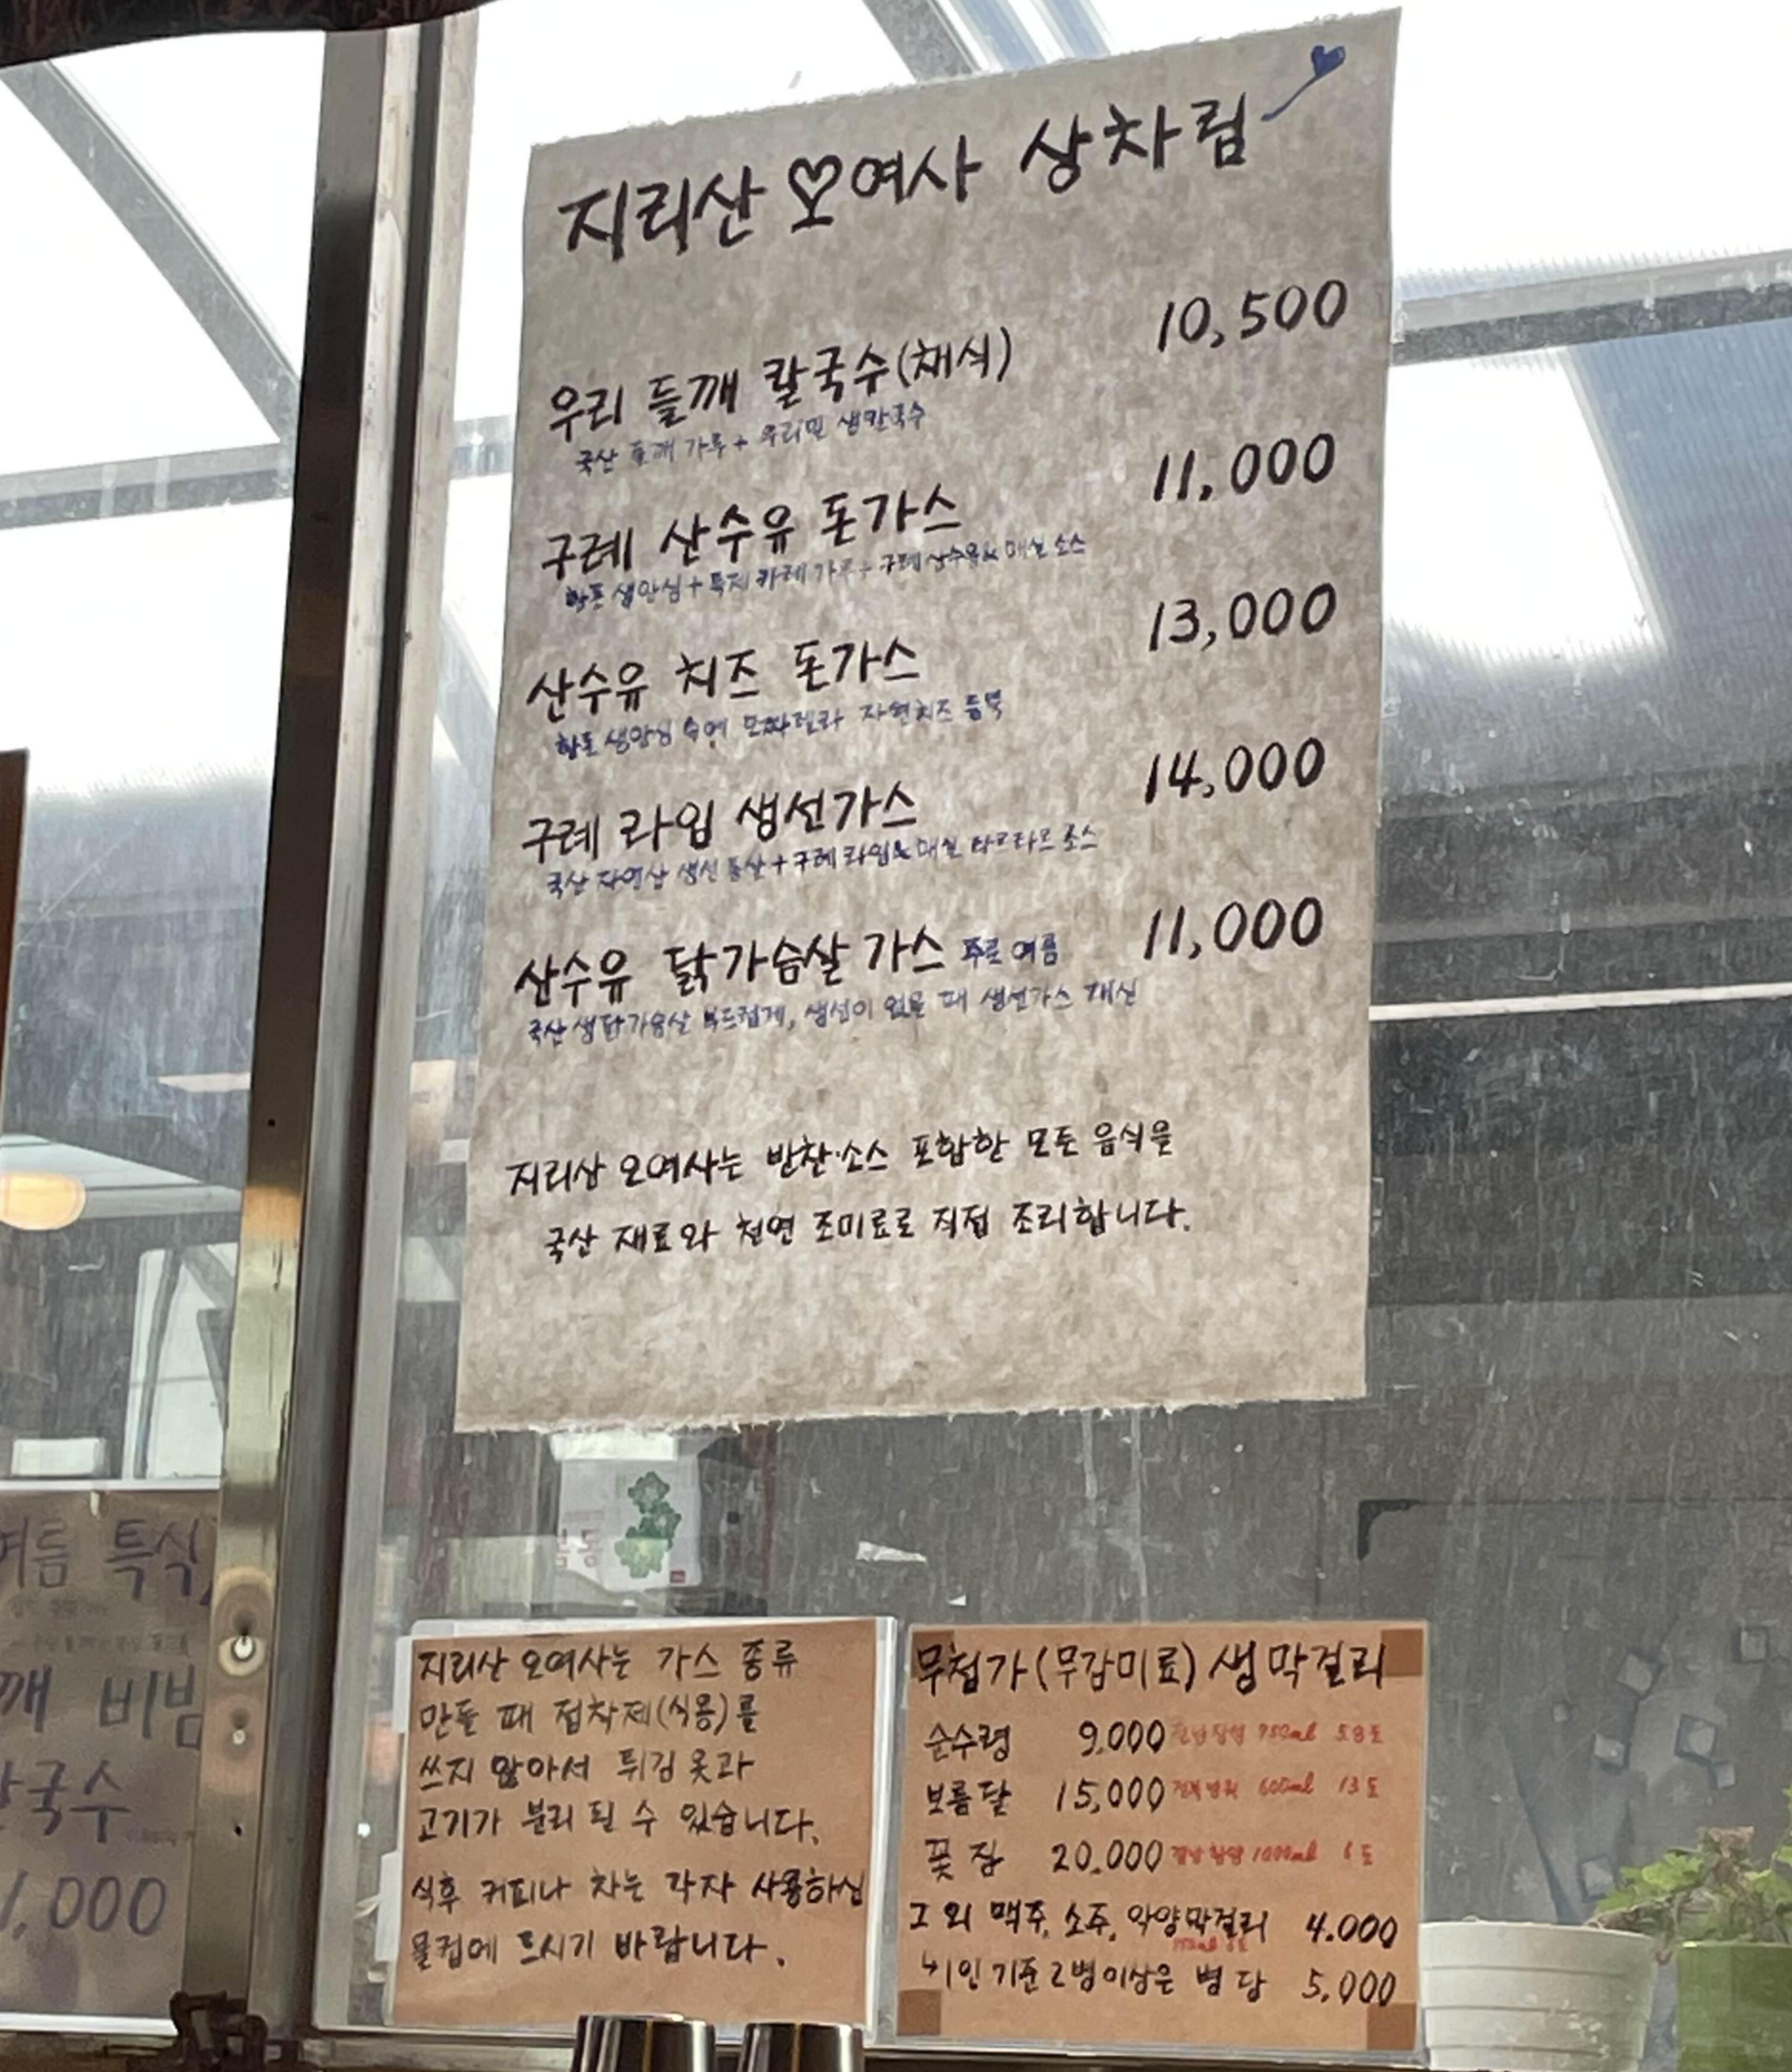 지리산 오여사 상차림
우리 들깨 칼국수(채식) 10,500
국산 들깨 가루 + 우리밀 생칼국수
구례 산수유 돈가스 11,000
생안심 + 특제 카레가루 + 구례 산수유 & 매실 소스
산수유 치즈 돈가스 13,000
생안심 속에 모짜렐라 자연치즈 듬뿍
구례 라임 생선가스 14,000
국산 자연산 생선 통살 + 구례 라임 & 매실 타르타르 소스
산수유 닭가슴살 가스 주로 여름 11,000
국산 생닭가슴살 부드럽게, 생선이 없을 때 생선가스 대신
지리산 오여사는 반찬·소스 포함한 모든 음식을
국산 재료와 천연 조미료로 직접 조리합니다.
여름 특식
깨 비빔
국수
1,000
지리산 오여사는 가스 종류
만들 때 접착제(식용)를
쓰지 않아서 튀김 옷과
고기가 분리 될 수 있습니다.
식후 커피나 차는 각자 사용하신
물컵에 드시기 바랍니다.
무첨가(무감미료) 생막걸리
순수령 9,000 750ml
보름달 15,000 600ml 13도
꽃잠 20,000 경남 함양 1000ml 6도
그 외 맥주, 소주, 악양막걸리 4,000
1인 기준 2병이상은 병 당 5,000